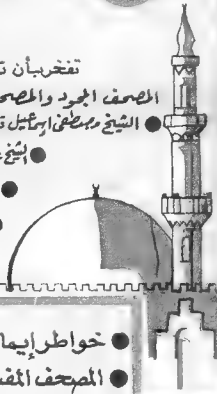 تفخر بأن
المصحف المجود والمصح
● الشيخ مصطفى اسماعيل
● الشيخ
●
●
● خواطر إيما
● المصحف المف